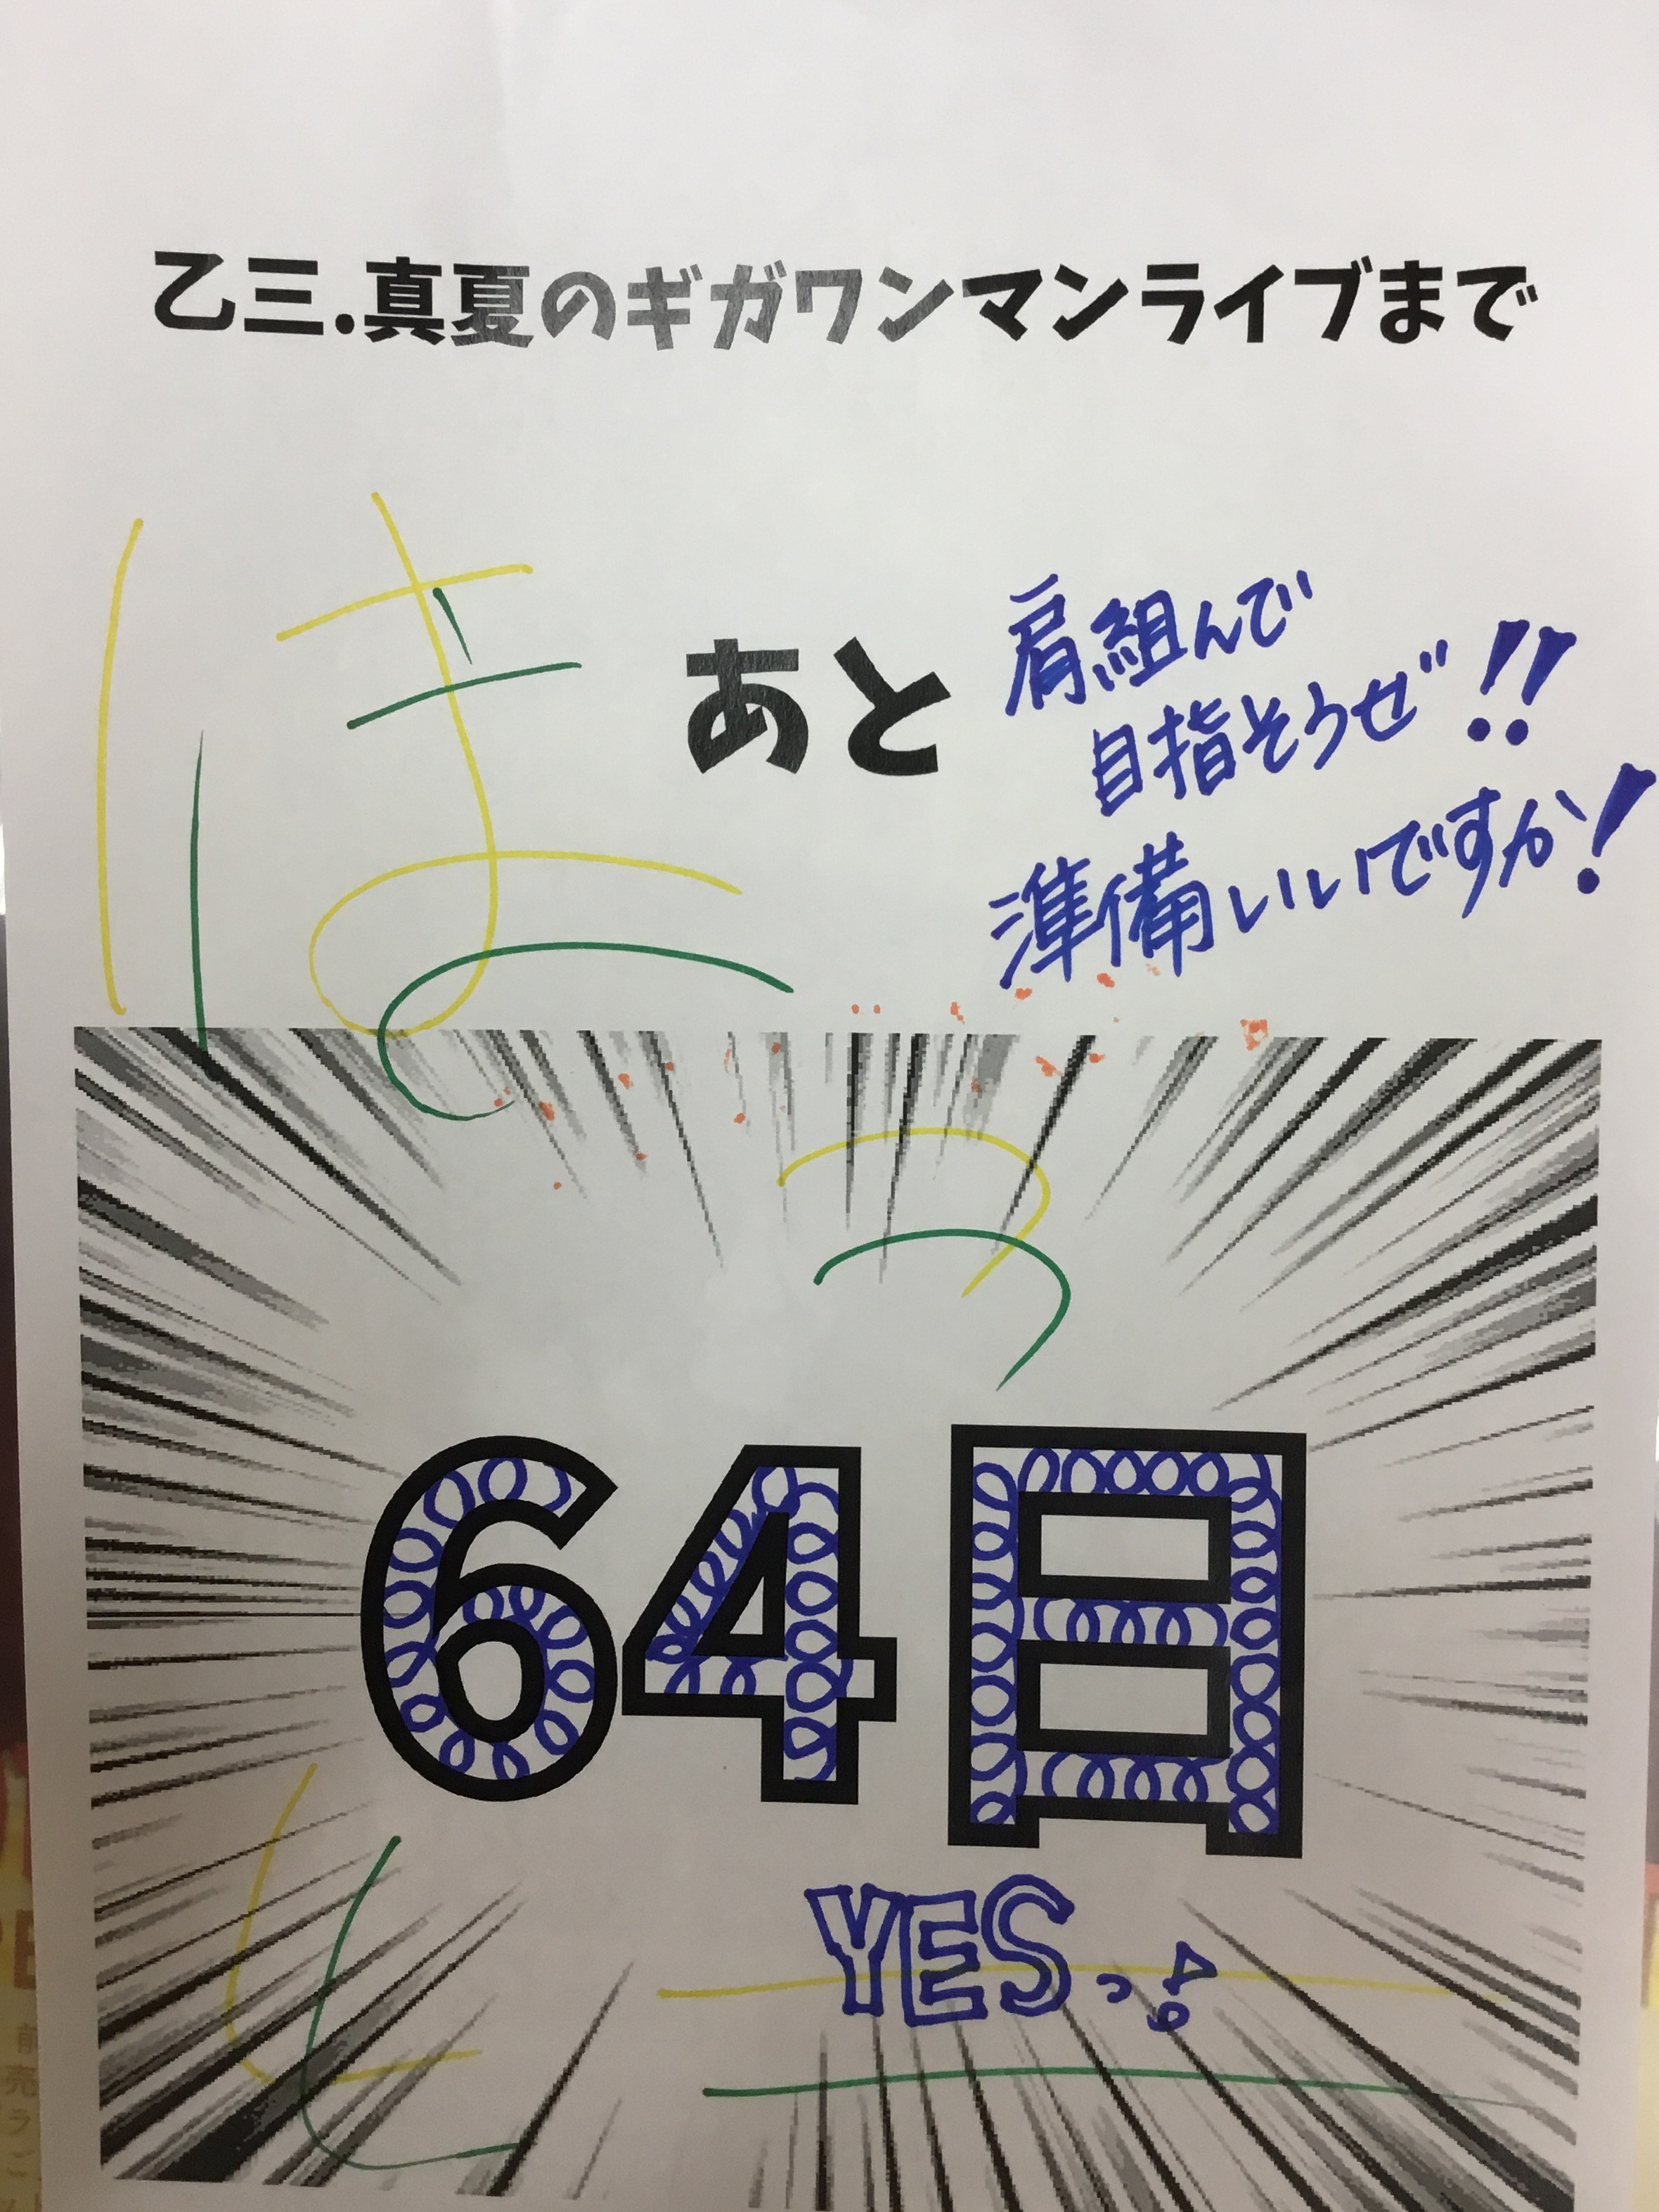 乙三.真夏のギガワンマンライブまで
あと
肩組んで
目指そうぜ!!
準備いいですか!
はっ
64日
YESっ!
しー